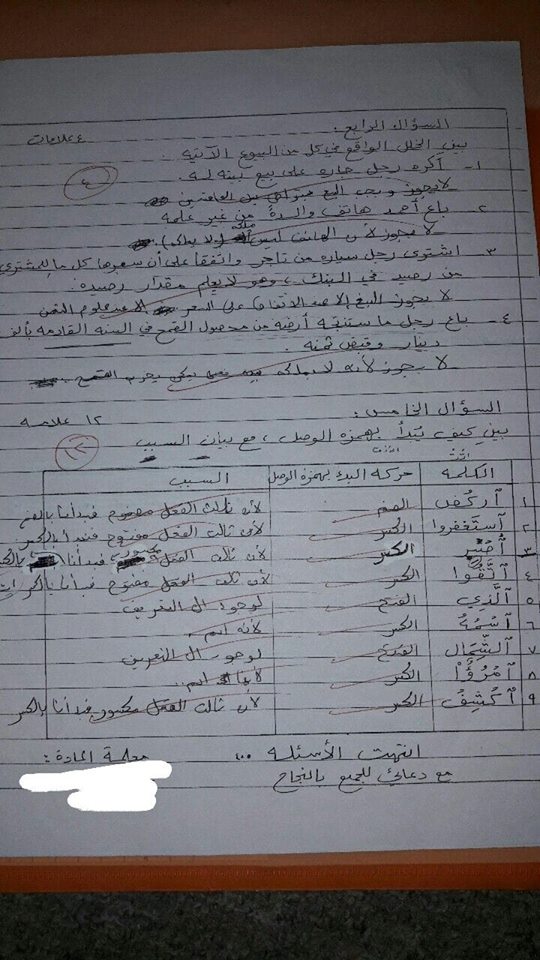 السؤال الرابع :
٤ علامات
بين الخلل الواقع في كل من البيوع الآتية :
٤
١- أكره رجل جاره على بيع بيته له .
لا يجوز ويجب البيع من العاقدين
٢- باع أحمد هاتف والده من غير علمه
لا يجوز لأن الهاتف ليس ملكه (لا يملكه) .
٣- اشترى رجل سيارة من تاجر واتفقا على أن سعرها كل ما للمشتري
من رصيد في البنك ، وهو لا يعلم مقدار رصيده .
لا يجوز البيع إلا عند الاتفاق على السعر الثمن
٤- باع رجل ما ستنتجه أرضه من محصول القمح في السنة القادمة بألف
دينار وقبض ثمنه .
لا يجوز لأنه لا يملكه
السؤال الخامس :
١٢ علامة
بين كيف يُبدأ بهمزة الوصل ، مع بيان السبب
١٢
الكلمة حركة البدء بهمزة الوصل السبب
١ ٱركُض الضم لأن ثالث الفعل مضموم فبدأنا بالضم
٢ ٱستغفروا الكسر لأن ثالث الفعل مفتوح فبدأنا بالكسر
٣ ٱصْبِر الكسر لأن ثالث الفعل مكسور فبدأنا بالكسر
٤ ٱتَّقُوا الكسر لأن ثالث الفعل مفتوح فبدأنا بالكسر
٥ ٱلَّذِي الفتح لوجود ال التعريف
٦ ٱسْمُهُ الكسر لأنه اسم .
٧ ٱلشِّمَال الفتح لوجود ال التعريف
٨ ٱمْرُؤٌا۟ الكسر اسم .
٩ ٱكْشِفْ الكسر لأن ثالث الفعل مكسور فبدأنا بالكسر
انتهت الأسئلة ...
معلمة المادة :
مع دعائي للجميع بالنجاح